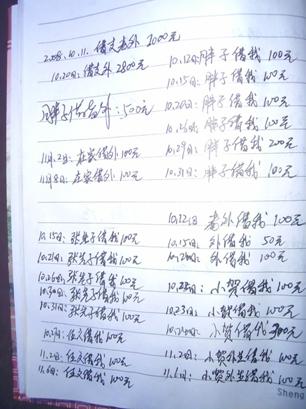 2008.10.11.借支老外1000元
10.20日:借支外2800元
胖子借老外:500元
11月2日:在家借外100元
11月8日:在家借外100元
10.12日胖子借我100元
10.15日:胖子借我100元
10.20日:胖子借我100元
10.26日:胖子借我100元
10.29日:胖子借我200元
10.31日:胖子借我100元
10.15日:张先子借我100元
10.21日:张先子借我100元
10.26日:张先子借我100元
10.30日:张先子借我100元
10.31日:张先子借我100元
11.2日:任文借我100元
11.6日:任文借我100元
10.12日 老外借我100元
10.15日:外借我50元
外借我100元
小贺借我100元
10.23日:小贺借我100元
小贺借我300元
11.2日:小贺外生借我100元
11.6日:小贺外生借我100元
Sheng